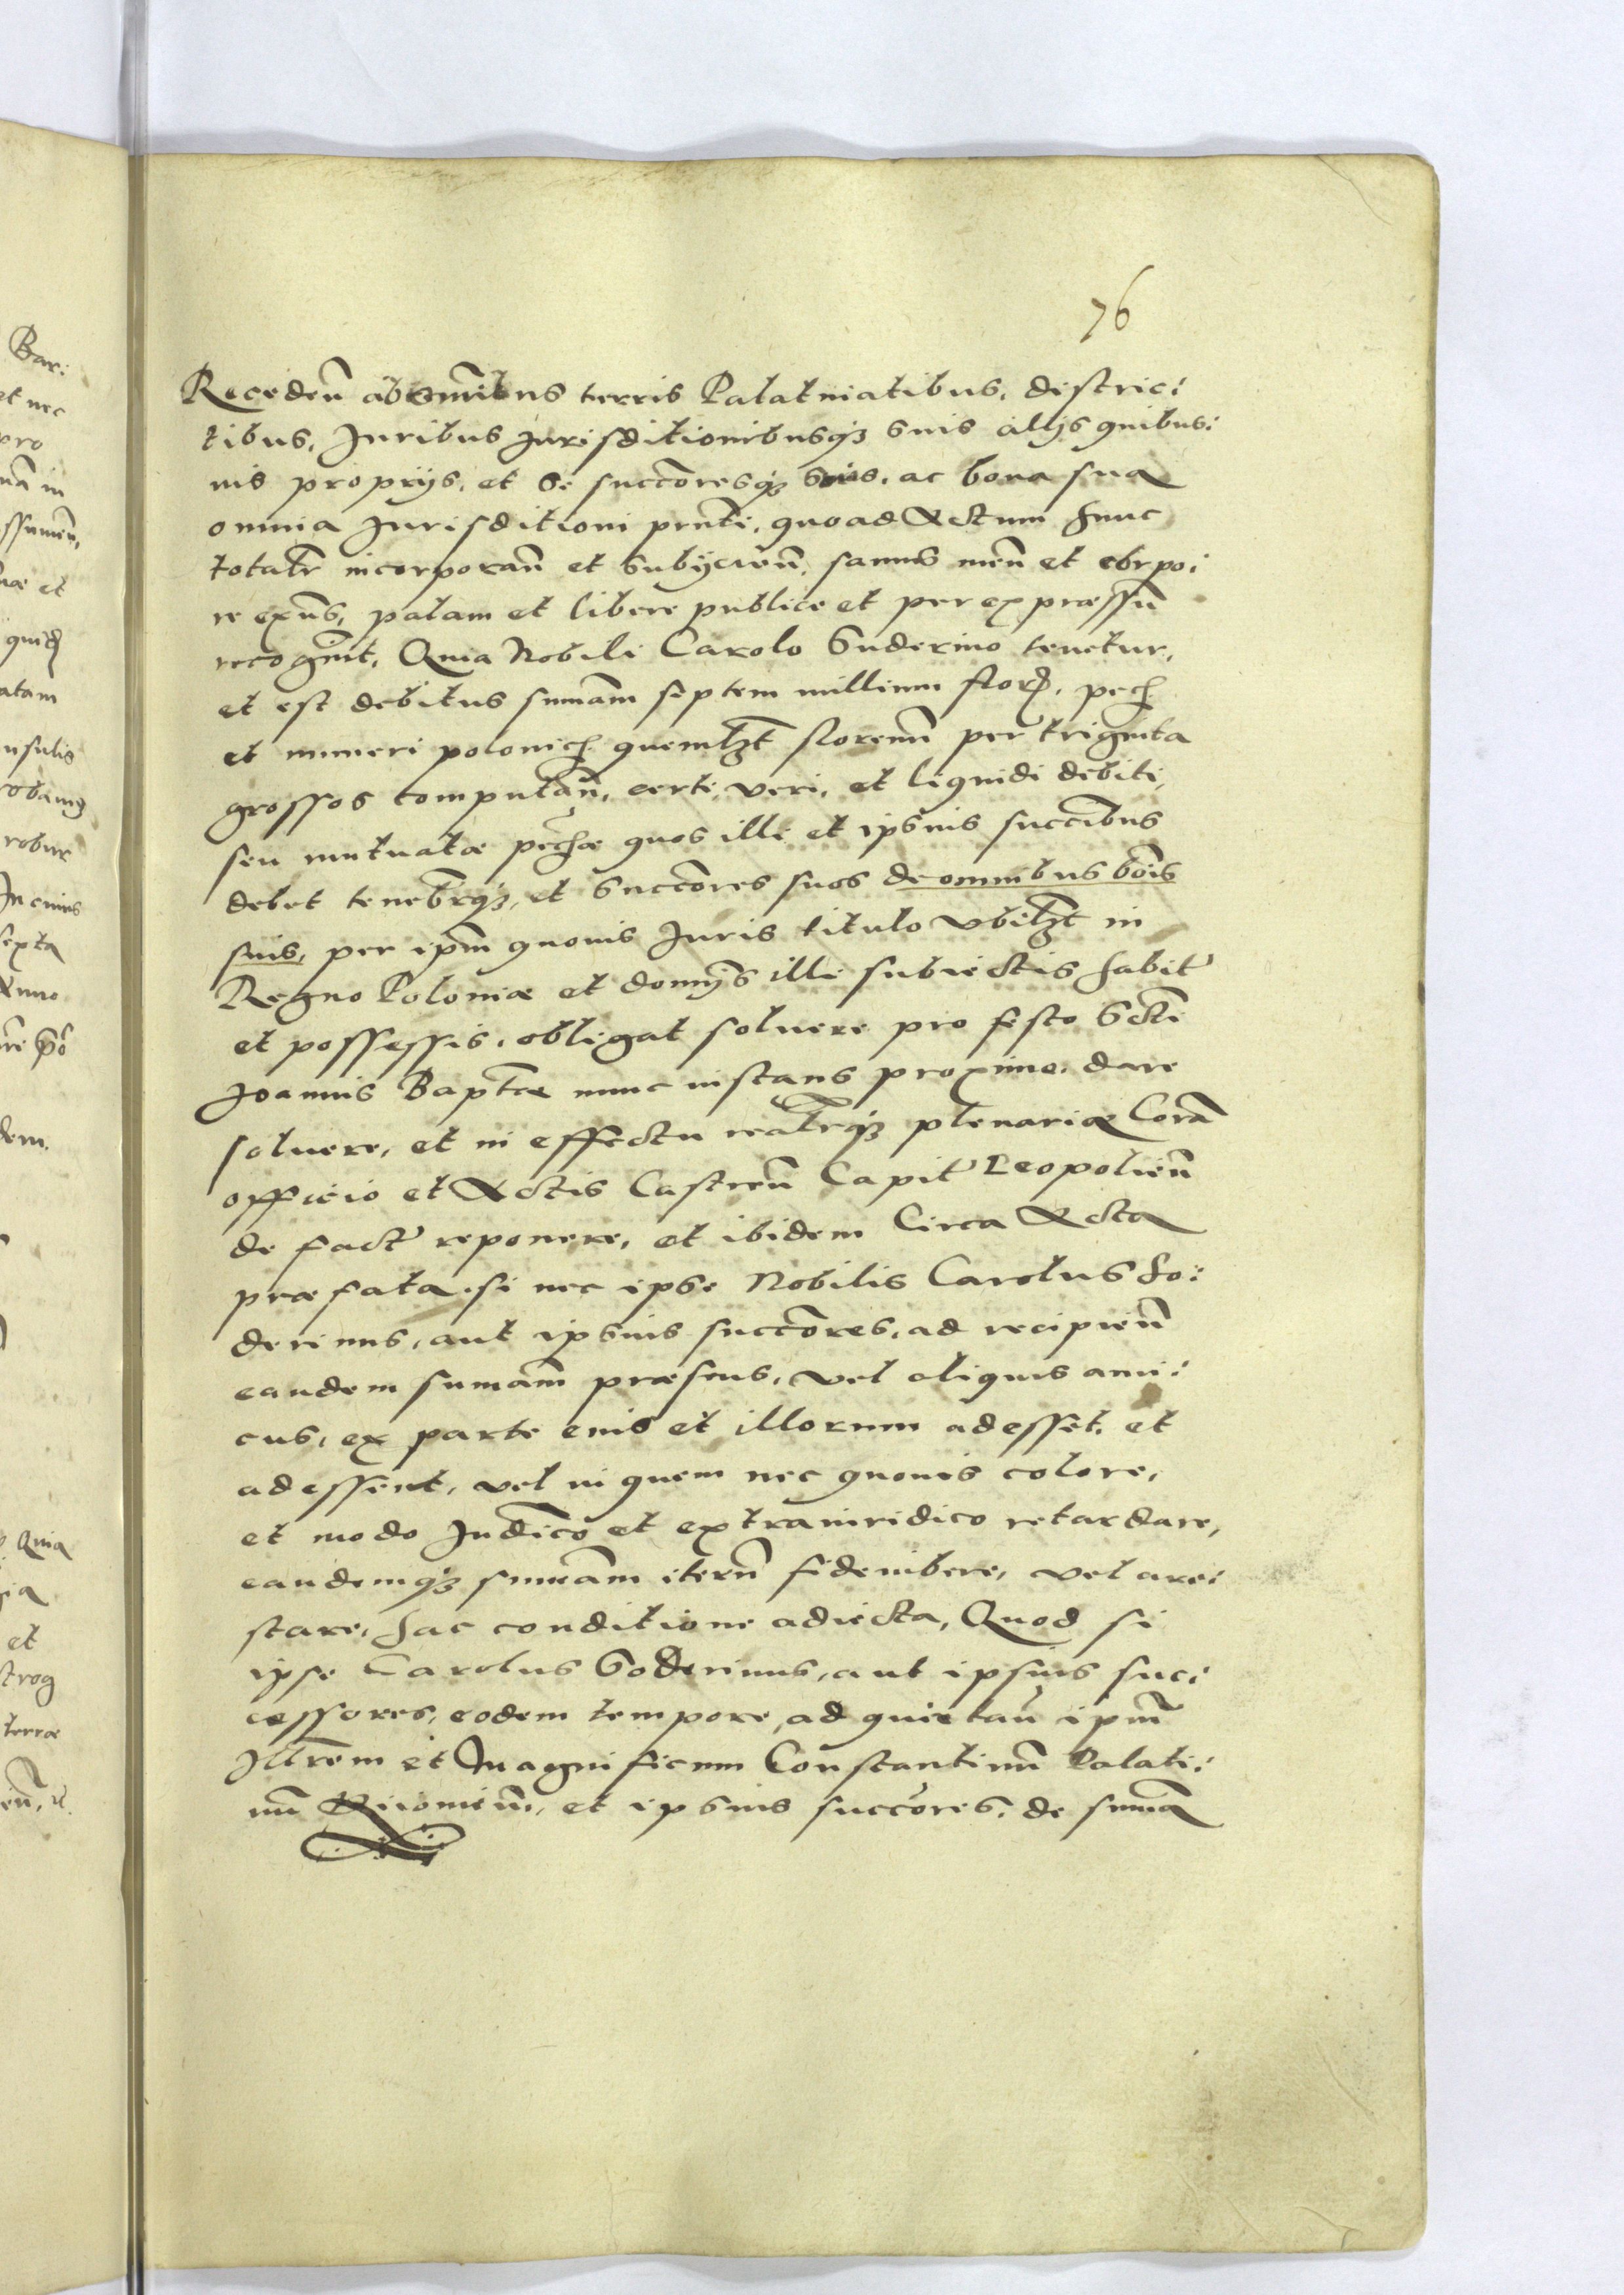 76
Recedeñ ab omnibus terris Palatinatibus, district:
tibus, Juribus Jurisditionibusq3 suis alijs quibus:
uis proprijs, et se succōresq3 suos, ac bona sua
omnia Jurisditioni prnti, quoad Actum hunc
totalr incorporañ et subijcieñ, sanus meñ et corpo:
re exñs, palam et libere publice et per expraessũ
recognit, Quia Nobili Carolo Suderino tenetur,
et est debitus sumam septem millium flor, pech
et numeri polonich quemlzt florenũ per triginta
grossos computañ, certi, veri, et liquidi debiti,
seu mutuatæ pechæ quos illi et ipsius succibus
debet tenebrq3, et succōres suos de omnibus bōis
suis, per ipm quouis Juris titulo vbilzt in
Regno Poloniæ et domijs illi subiectis habit
et possessis, obligat soluere pro festo Scti
Joannis Baptæ nunc instans proxime, dare
soluere, et in effectu realrq3 plenarie Corã
officio et Actis Castreñ Capit Leopolieñ
de fact reponere, et ibidem Circa Acta
præfata, si nec ipse Nobilis Carolus So:
derinus, aut ipsius succōres, ad recipieñ
eandem sumam præsens, vel aliquis ami:
cus, ex parte eius et illorum adesset, et
adessent, vel in quem nec quouis colore,
et modo Judico et extraiuridico retardare,
eandemq3 sumam iterũ fideiubere, vel are:
stare, hac conditione adiecta, Quod si
ipse Carolus Soderinus, aut ipsius suc:
cessores, eodem tempore, ad quietañ ipm
Jllrem et Magnificum Constantinũ Palati:
nũ Kiiouieñ, et ipsius succōres, de sumã